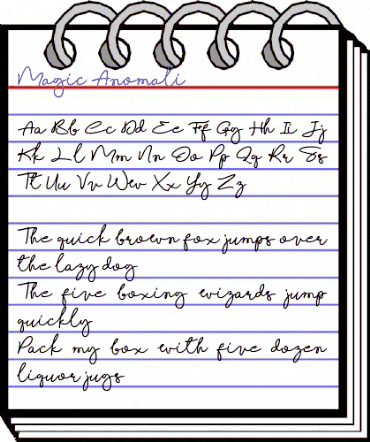 Magic Anomali
Aa Bb Cc Dd Ee Ff Gg Hh Ii Jj
Kk Ll Mm Nn Oo Pp Qq Rr Ss
Tt Uu Vv Ww Xx Yy Zz
The quick brown fox jumps over
the lazy dog
The five boxing wizards jump
quickly
Pack my box with five dozen
liquor jugs